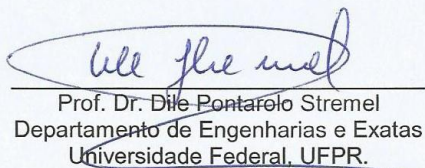 Prof. Dr. Dile Pontarolo Stremel
Departamento de Engenharias e Exatas
Universidade Federal, UFPR.